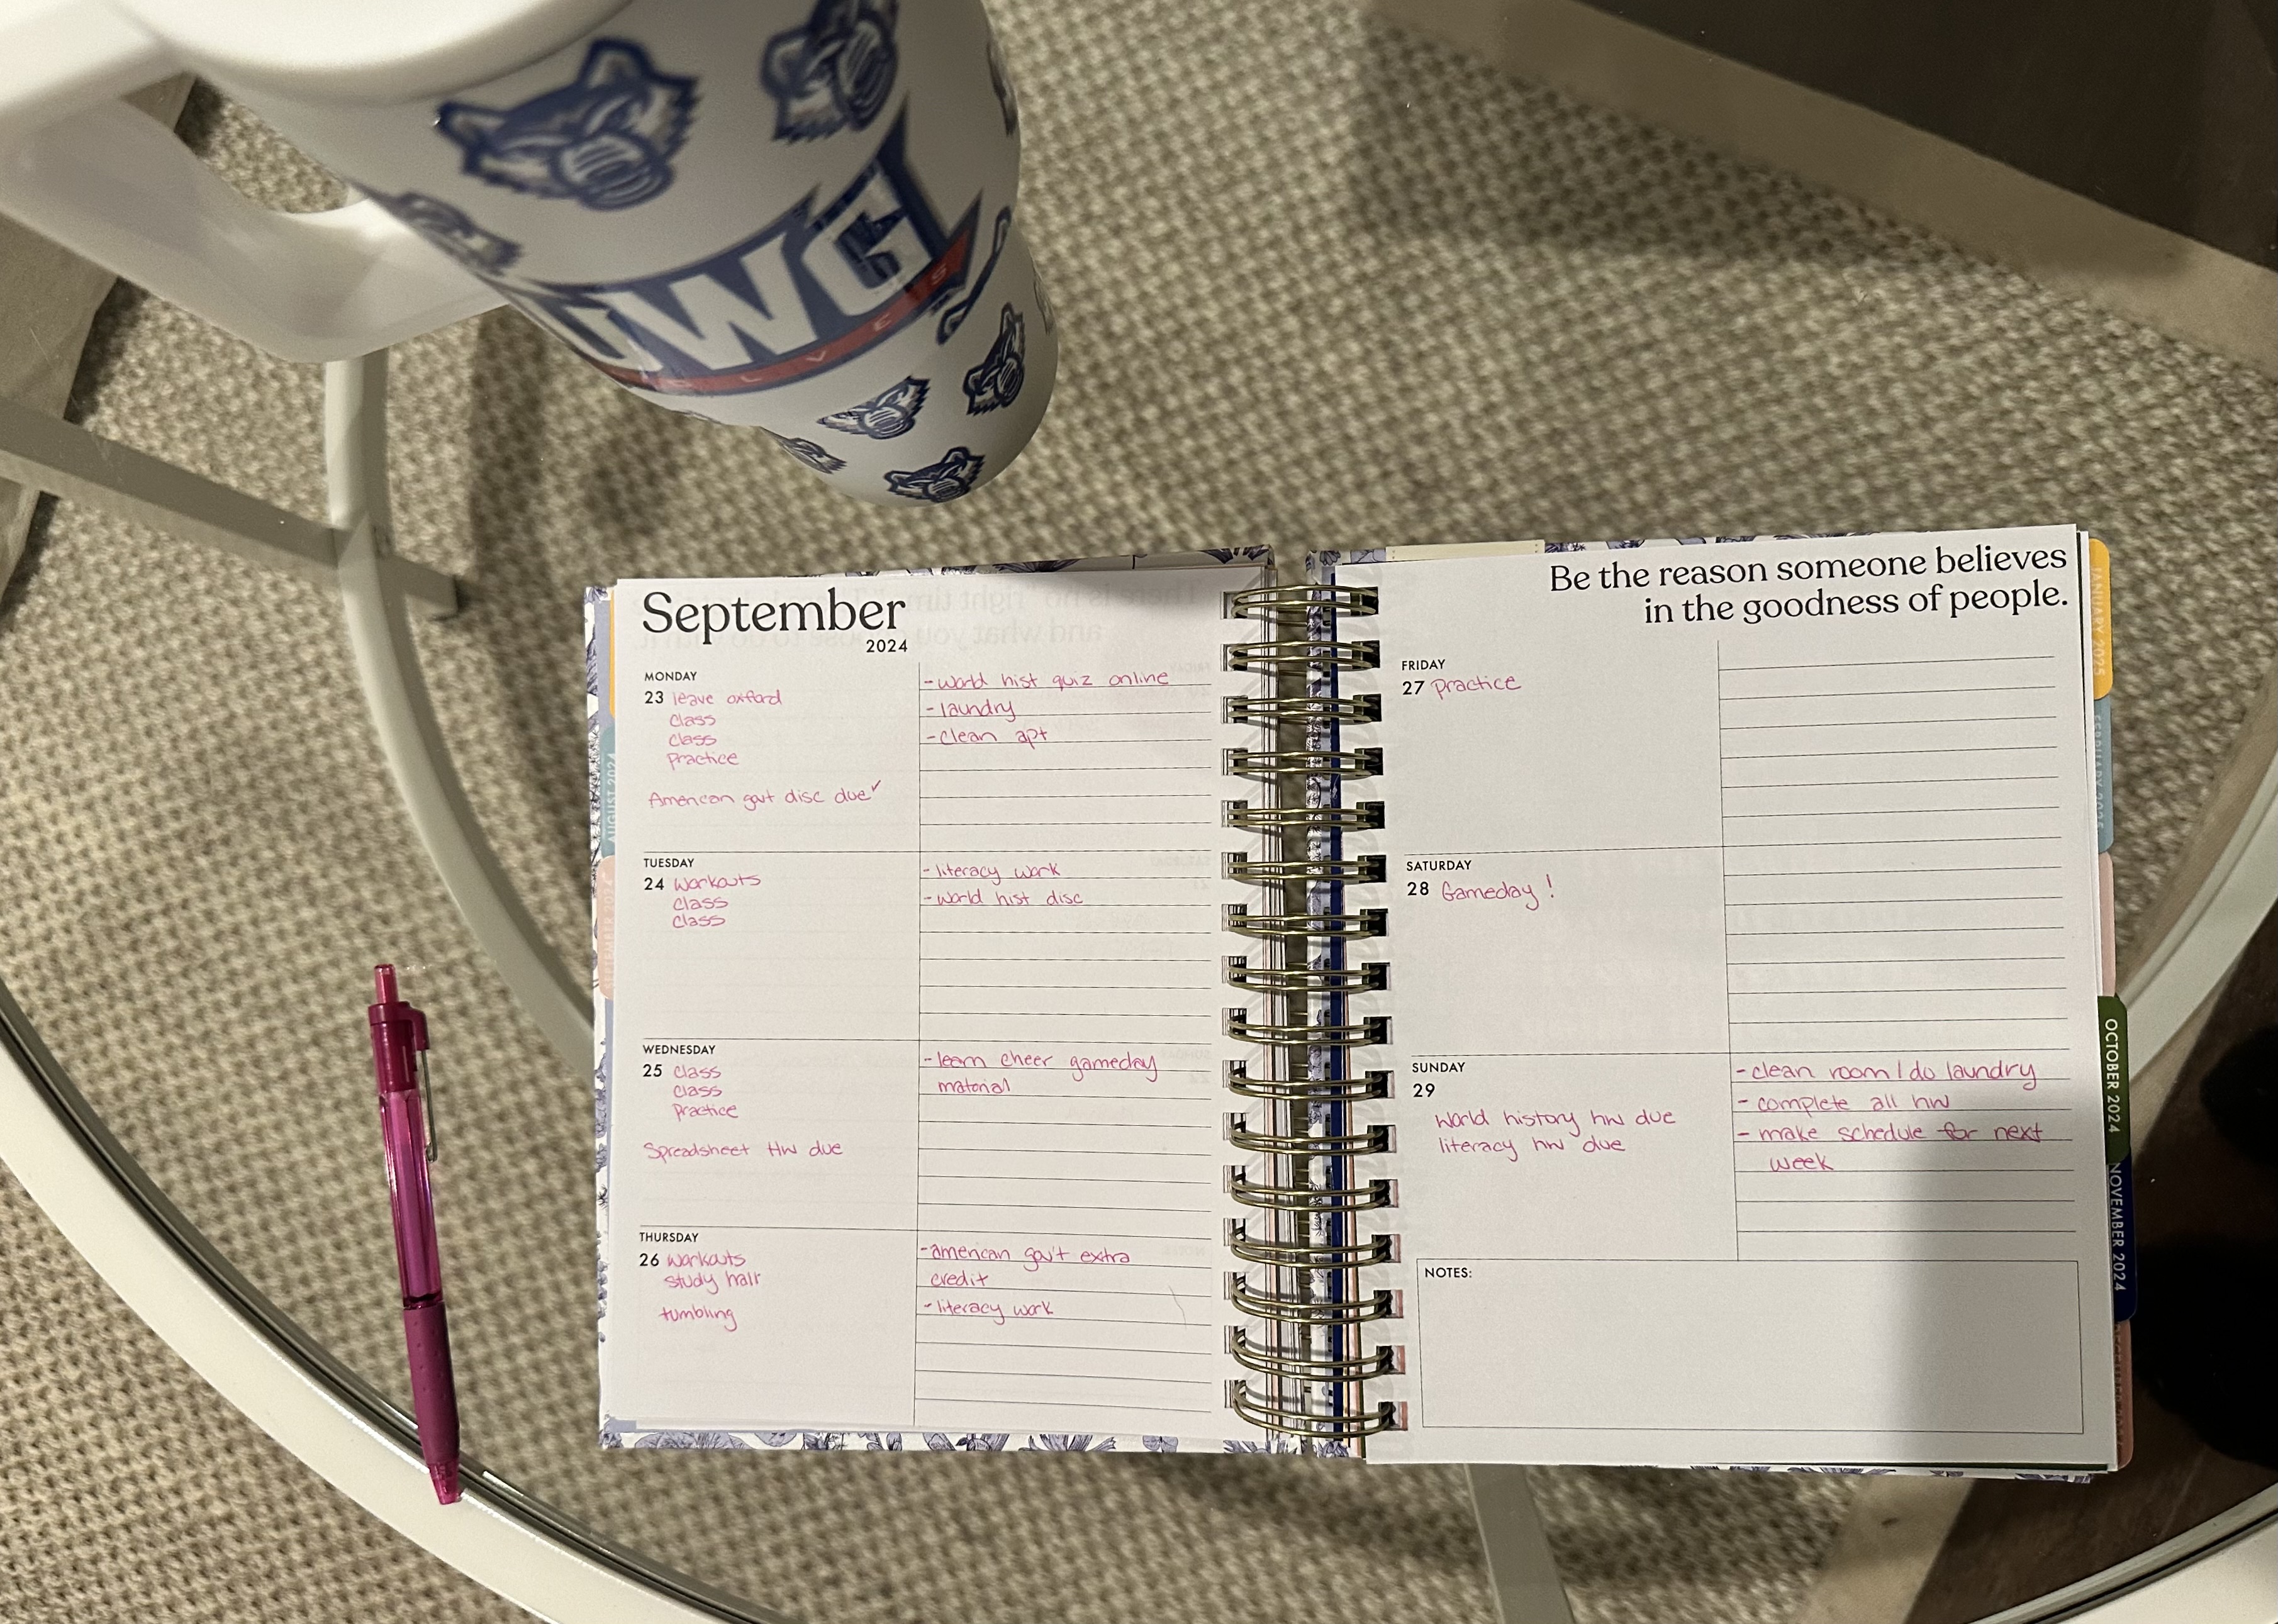 UWG
WOLVES
September
2024
MONDAY
23 leave oxford
class
class
practice
American gov't disc due ✓
- world hist quiz online
- laundry
- clean apt
TUESDAY
24 workouts
class
class
- literacy work
- world hist disc
WEDNESDAY
25 class
class
practice
Spreadsheet HW due
- learn cheer gameday
material
THURSDAY
26 workouts
study hall
tumbling
- american gov't extra
credit
- literacy work
Be the reason someone believes
in the goodness of people.
FRIDAY
27 practice
SATURDAY
28 Gameday!
SUNDAY
29
world history hw due
literacy hw due
- clean room / do laundry
- complete all hw
- make schedule for next
week
NOTES:
AUGUST 2024
SEPTEMBER 2024
JANUARY 2025
FEBRUARY 2025
OCTOBER 2024
NOVEMBER 2024